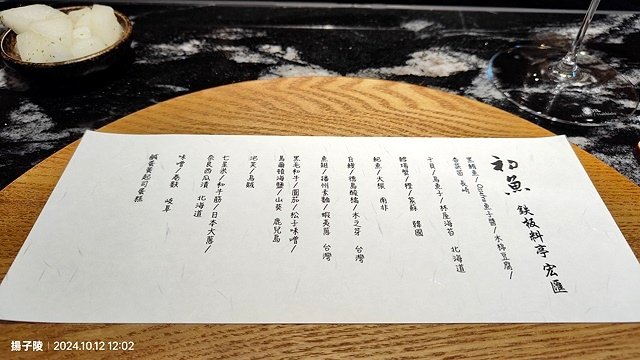 初魚 鉄板料亭 宏匯
黑鮪魚/Oscietra魚子醬/木棉豆腐/
香菜苗 長崎
干貝/烏魚子/秋屋海苔 北海道
鱈場蟹/橙/紫蘇 韓國
鮑魚/大根 南非
白鰻/德島酸橘/木之芽 台灣
魚翅/播州素麵/蝦夷蔥 台灣
黑毛和牛/圓茄/松子味噌/
馬爾頓海鹽/山葵 鹿兒島
泡芙/烏賊
七星米/和牛筋/日本大蔥/
奈良西瓜漬 北海道
味噌/卷麩 岐阜
鹹蛋黃起司蛋糕
揚子陵 | 2024.10.12 12:02